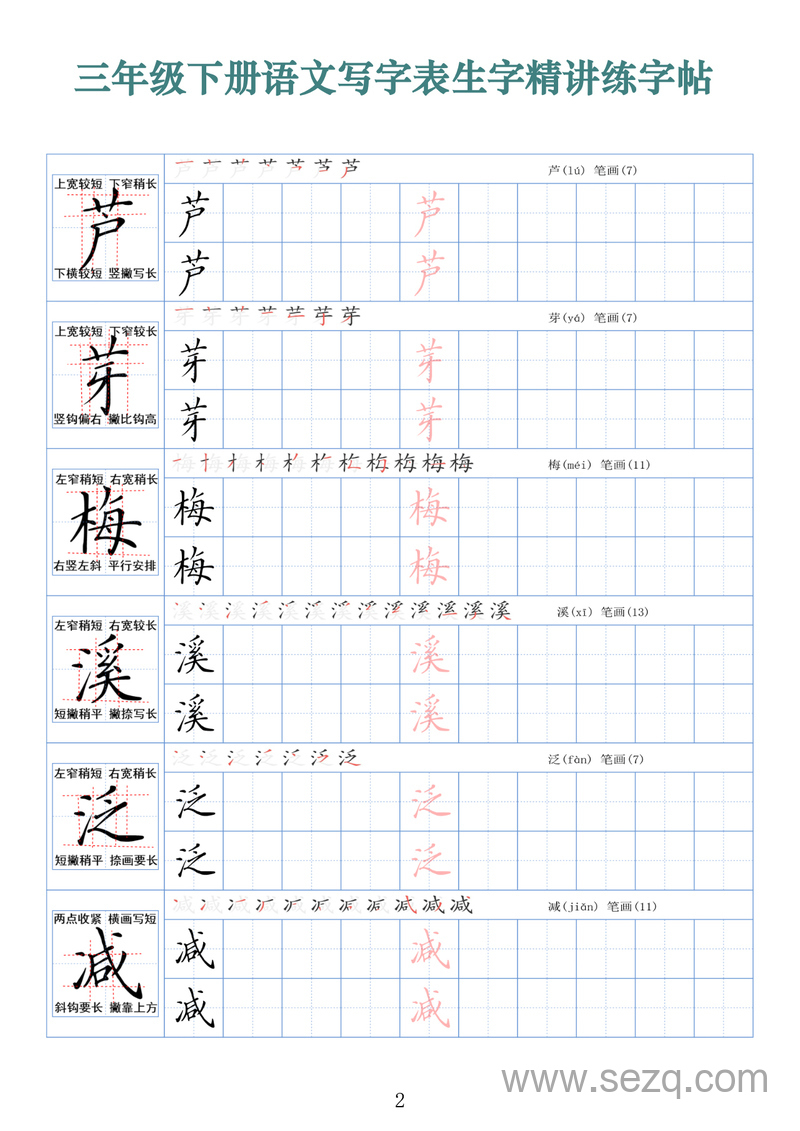 三年级下册语文写字表生字精讲练字帖
芦(lú) 笔画(7)
上宽较短 下窄稍长
芦
下横较短 竖撇写长
芦 芦
芦 芦
芽(yá) 笔画(7)
上宽较短 下窄较长
芽
竖钩偏右 撇比钩高
芽 芽
芽 芽
梅(méi) 笔画(11)
左窄稍短 右宽稍长
梅
右竖左斜 平行安排
梅 梅
梅 梅
溪(xī) 笔画(13)
左窄稍短 右宽较长
溪
短撇稍平 撇捺写长
溪 溪
溪 溪
泛(fàn) 笔画(7)
左窄稍短 右宽稍长
泛
短撇稍平 捺画要长
泛 泛
泛 泛
减(jiǎn) 笔画(11)
两点收紧 横画写短
减
斜钩要长 撇靠上方
减 减
减 减
www.sezq.com
2